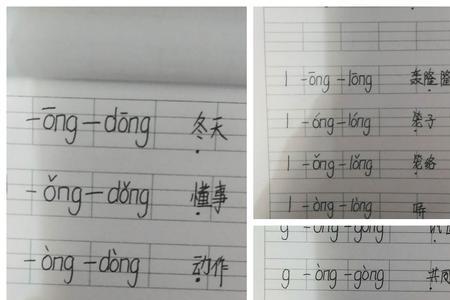 -ōng-dōng 冬天
-ǒng-dǒng 懂事
-òng-dòng 动作
l-ōng-lōng 轰隆隆
l-óng-lóng 笼子
l-ǒng-lǒng 笼络
l-òng-lòng
g- òng-gòng 共同